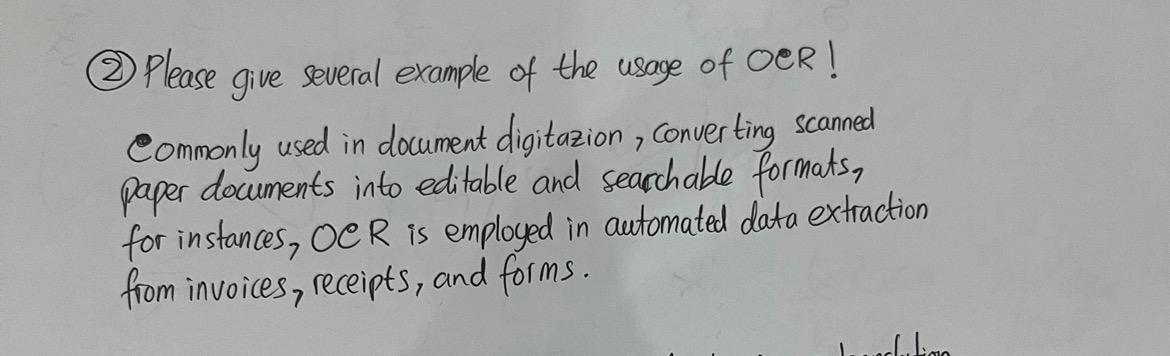 ② Please give several example of the usage of OCR!
Commonly used in document digitazion, converting scanned
paper documents into editable and searchable formats,
for instances, OCR is employed in automated data extraction
from invoices, receipts, and forms.